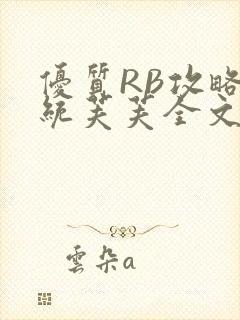 優質RB攻略
統芙芙全文
雲朵a